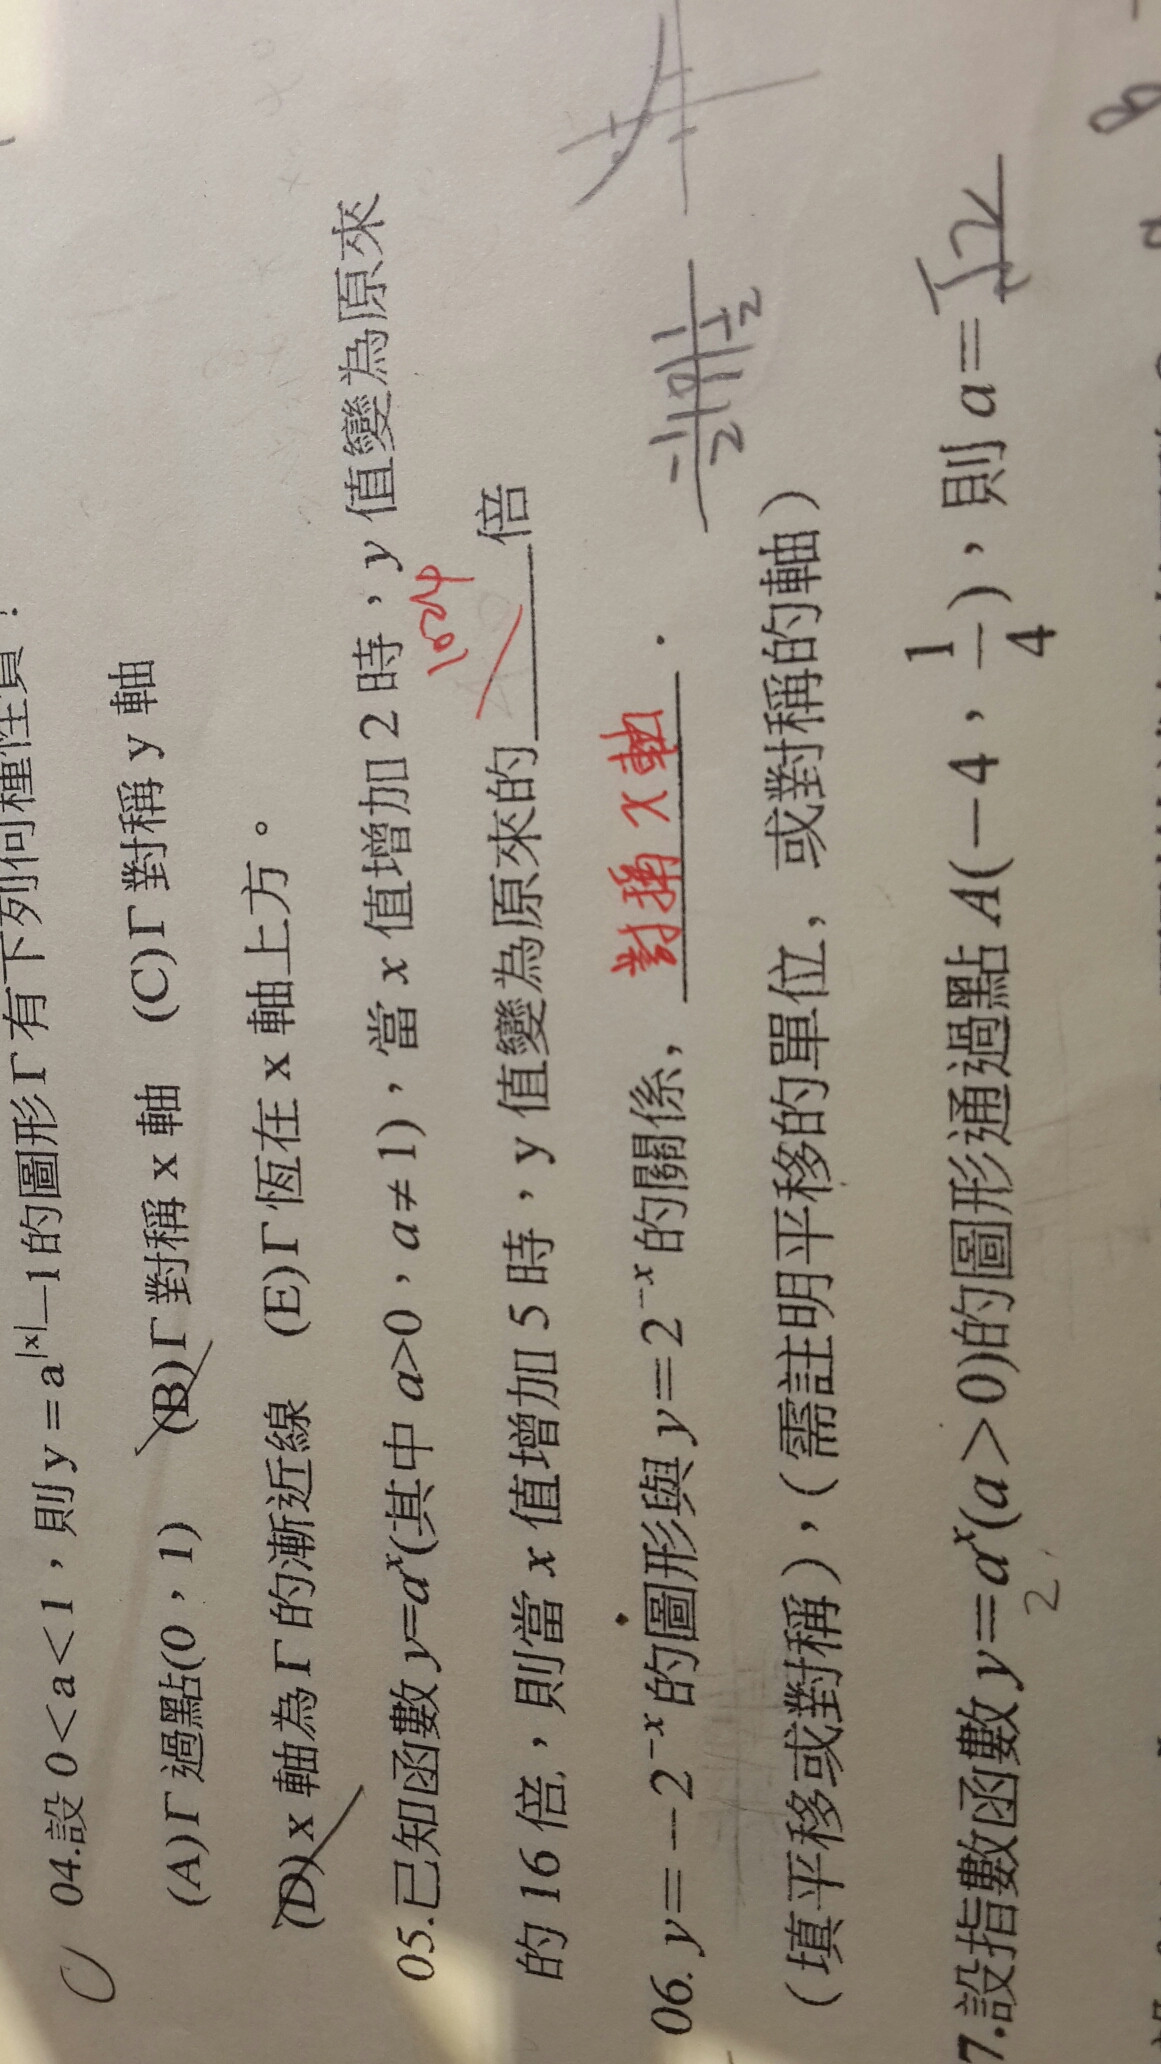 C 04.設 0<a<1,則 y=a^|x|−1的圖形 Γ 有下列何種性質?
(A)Γ 過點(0,1) (B)Γ 對稱 x 軸 (C)Γ 對稱 y 軸
(D)x 軸為 Γ 的漸近線 (E)Γ 恆在 x 軸上方。
05.已知函數 y=aˣ(其中 a>0,a≠1),當 x 值增加 2 時,y 值變為原來
的 16 倍,則當 x 值增加 5 時,y 值變為原來的 1024 倍
06. y=−2⁻ˣ的圖形與 y=2⁻ˣ的關係, 對稱 x 軸 .
(填平移或對稱),(需註明平移的單位,或對稱的軸)
7.設指數函數 y=aˣ(a>0)的圖形通過點 A(−4,1/4),則 a=√2
2